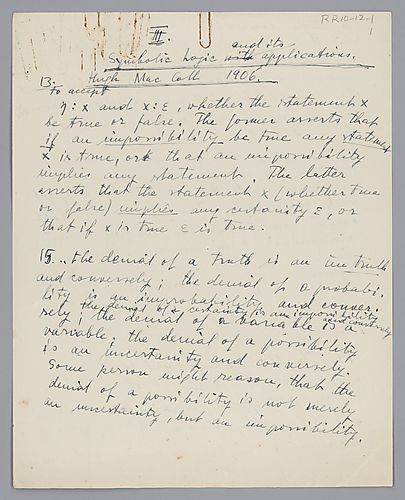 RR10-12-1
1
III.
and its
Symbolic Logic with applications.
13. Hugh Mac Coll 1906.
to accept
η : x and x : ε, whether the statement x
be true or false. The former asserts that
if an impossibility be true any statement
x is true, or that an impossibility
implies any statement. The latter
asserts that the statement x (whether true
or false) implies any certainty ε, or
that if x is true ε is true.
15. .. the denial of a truth is an untruth
and conversely; the denial of a probabi-
lity is an improbability, and conver-
the denial of a certainty is an impossibility
and conversely
sely; the denial of a variable is a
variable, the denial of a possibility
is an uncertainty and conversely.
Some person might reason, that the
denial of a possibility is not merely
an uncertainty, but an impossibility.